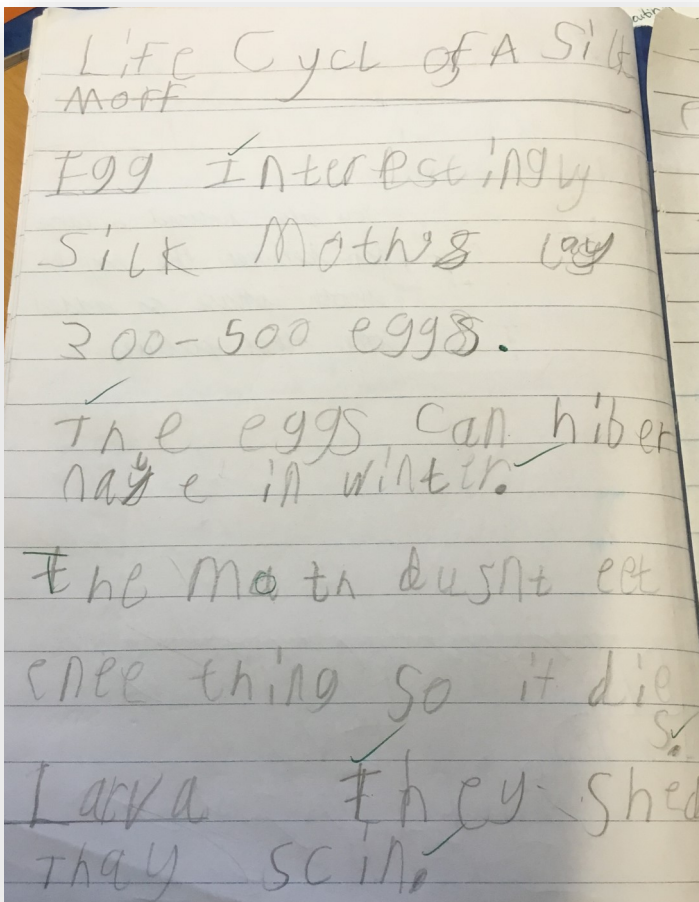 Life Cycl of A Silk
Moff
Egg Interestingly
Silk Moths lay
300-500 eggs.
The eggs can hiber
nate in winter.
the Moth dusnt eet
enee thing so it die
s.
Larva they shed
Thay scin.